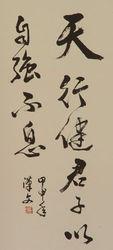 天行健君子以
自強不息
甲申年
漢文